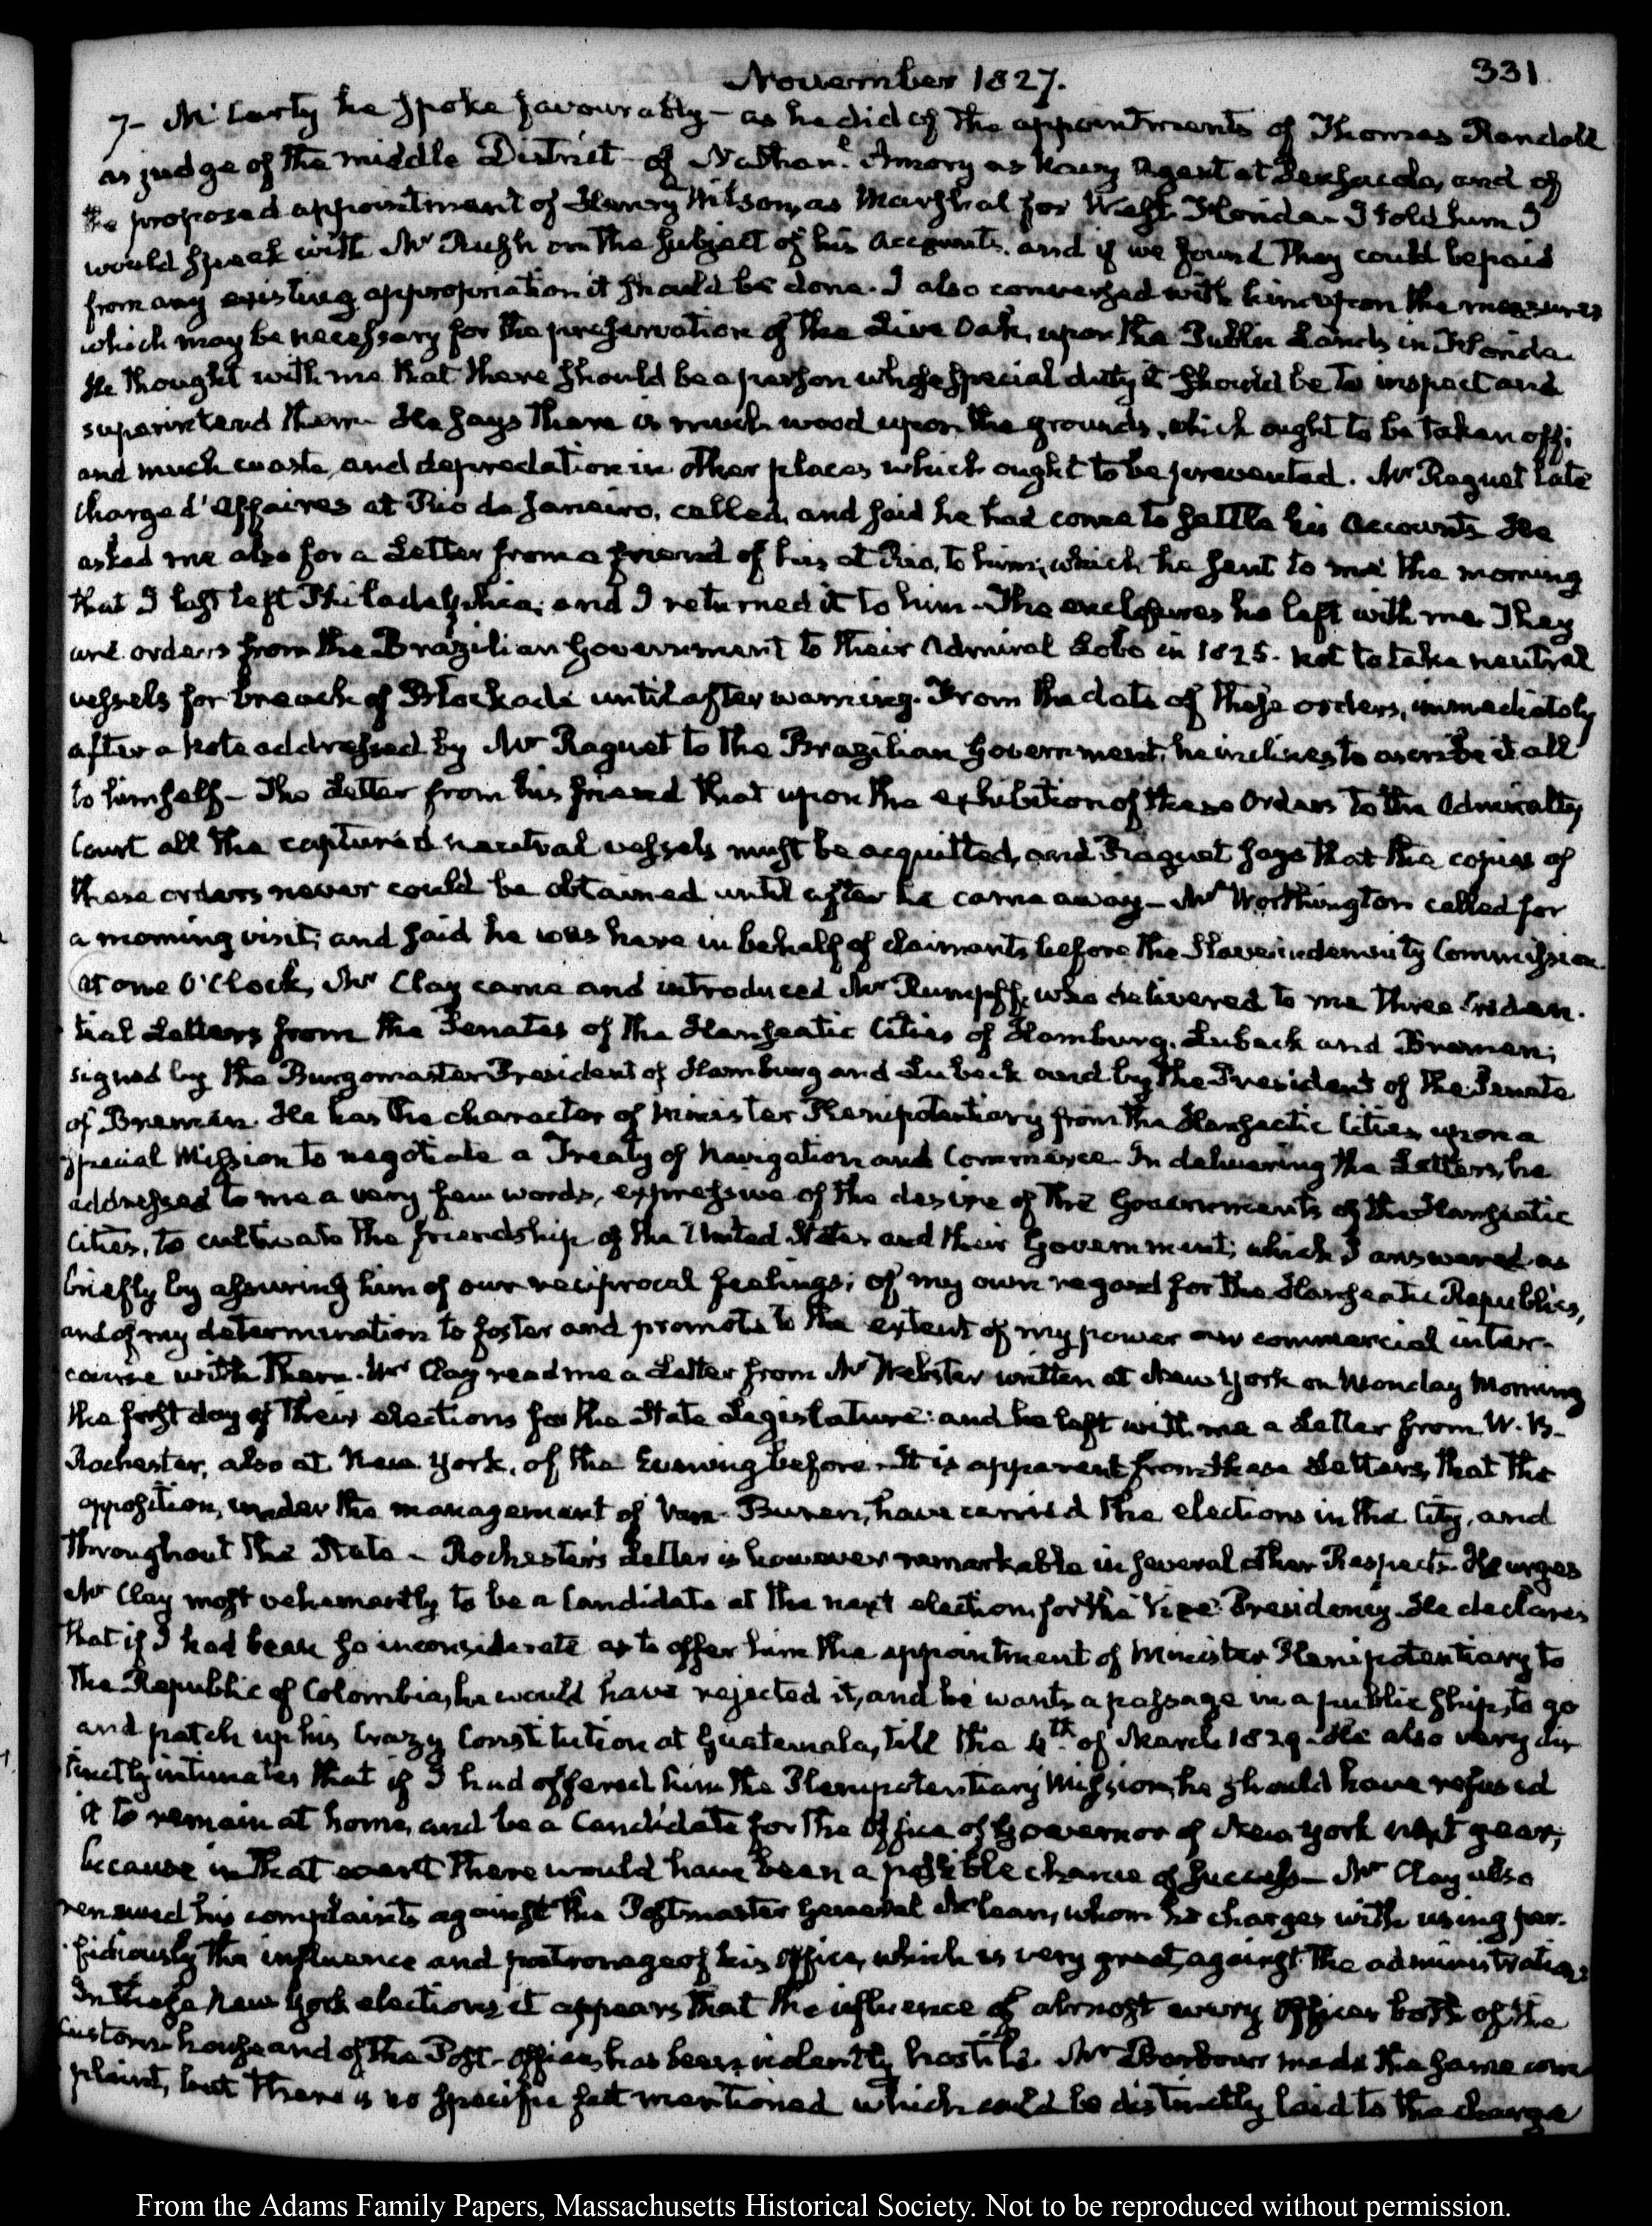 November 1827.
331
7— McCarty he spoke favourably— as he did of the appointments of Thomas Randall
as judge of the middle District— of Nathanl. Amory as Navy Agent at Pensacola, and of
the proposed appointment of Henry Wilson, as Marshal for West Florida— I told him I
would speak with Mr Rush on the subject of his accounts, and if we found they could be paid
from any existing appropriation it should be done. I also conversed with him upon the measures
which may be necessary for the preservation of the Live Oak, upon the Public Lands in Florida
He thought with me that there should be a person whose special duty it should be to inspect and
superintend them— He says there is much wood upon the grounds, which ought to be taken off;
and much waste, and depredation in other places which ought to be prevented. Mr Raguet late
Chargé d'Affaires at Rio de Janeiro, called, and said he had come to settle his Accounts— He
asked me also for a Letter from a friend of his at Rio, to him, which he sent to me the morning
that I last left Philadelphia; and I returned it to him— The enclosures he left with me. They
are orders from the Brazilian Government to their Admiral Lobo in 1825. not to take neutral
vessels for breach of Blockade until after warning. From the date of these orders, immediately
after a Note addressed by Mr Raguet to the Brazilian Government, he inclines to ascribe it all
to himself— The Letter from his friend that upon the exhibition of these Orders to the Admiralty
Court all the captured neutral vessels must be acquitted, and Raguet says that the copies of
these orders never could be obtained until after he came away— Mr Worthington called for
a morning visit; and said he was here in behalf of claimants before the Slave indemnity Commission.
At one O'Clock, Mr Clay came and introduced Mr Rumpff, who delivered to me three Creden-
tial Letters from the Senates of the Hanseatic Cities of Hamburg, Lubeck and Bremen;
signed by the Burgomaster President of Hamburg and Lubeck and by the President of the Senate
of Bremen. He has the character of Minister Plenipotentiary from the Hanseatic Cities upon a
special Mission to negotiate a Treaty of Navigation and Commerce— In delivering the Letters, he
addressed to me a very few words, expressive of the desire of the Governments of the Hanseatic
Cities, to cultivate the friendship of the United States and their Government; which I answered as
briefly by assuring him of our reciprocal feelings; of my own regard for the Hanseatic Republics,
and of my determination to foster and promote to the extent of my power our commercial inter-
course with them. Mr Clay read me a Letter from Mr Webster written at New York on Monday Morning
the first day of their elections for the State Legislature: and he left with me a Letter from W. B.
Rochester, also at New York, of the Evening before— It is apparent from these Letters, that the
opposition, under the management of Van Buren, have carried the elections in the City, and
throughout the State— Rochester's Letter is however remarkable in several other Respects— He urges
Mr Clay most vehemently to be a Candidate at the next election, for the Vice Presidency— He declares
that if I had been so inconsiderate as to offer him the appointment of Minister Plenipotentiary to
the Republic of Colombia, he would have rejected it, and he wants a passage in a public Ship, to go
and patch up his Crazy Constitution at Guatemala, till the 4th. of March 1829— He also very dis-
tinctly intimates that if I had offered him the Plenipotentiary Mission, he should have refused
it to remain at home, and be a Candidate for the Office of Governor of New York next year;
because in that event there would have been a possible chance of success— Mr Clay also
renewed his complaints against the Postmaster General McLean, whom he charges with using per-
fidiously the influence and patronage of his Office, which is very great, against the administration
In these New York elections it appears that the influence of almost every Officer both of the
Custom-house and of the Post-Office, has been violently hostile. Mr Barbour made the same com-
plaint, but there is no specific fact mentioned which could be distinctly laid to the charge
From the Adams Family Papers, Massachusetts Historical Society. Not to be reproduced without permission.